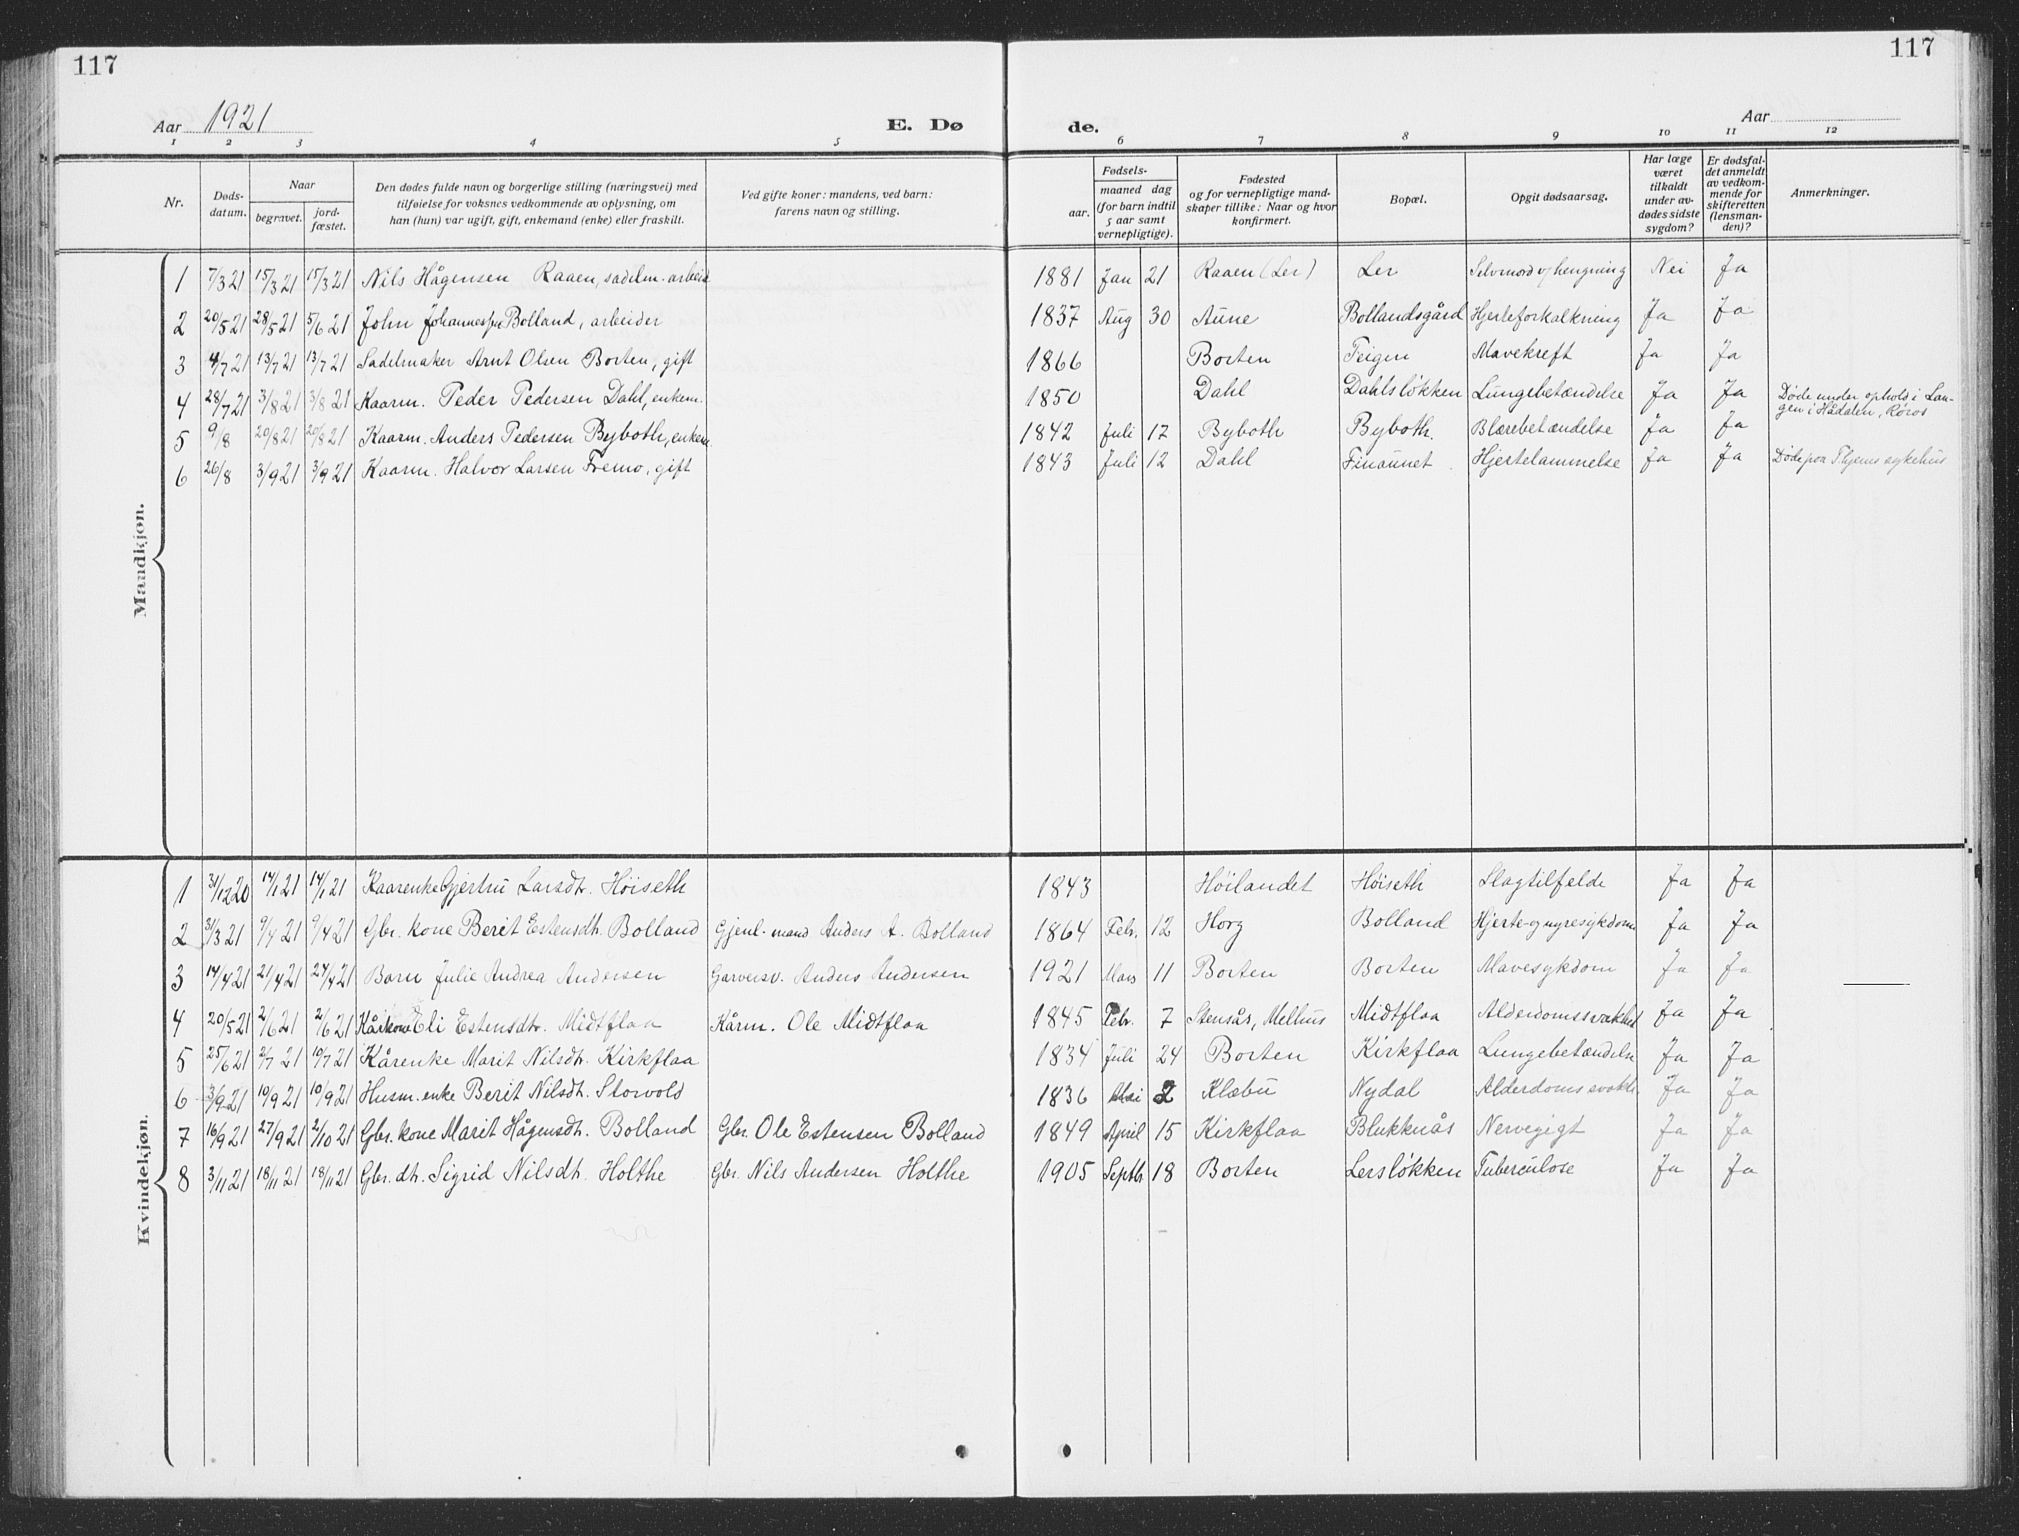 117
117
Aar 1921
E. Dø
de.
Aar
1 2 3 4 5 6 7 8 9 10 11 12
Nr.
Døds-
datum.
Naar
begravet.
jord-
fæstet.
Den dødes fulde navn og borgerlige stilling (næringsvei) med
tilføielse for voksnes vedkommende av oplysning, om
han (hun) var ugift, gift, enkemand (enke) eller fraskilt.
Ved gifte koner: mandens, ved barn:
farens navn og stilling.
Fødsels-
aar.
maaned dag
(for barn indtil
5 aar samt
vernepligtige).
Fødested
og for vernepligtige mand-
skaper tillike: Naar og hvor
konfirmert.
Bopæl.
Opgit dødsaarsag.
Har læge
været
tilkaldt
under av-
dødes sidste
sygdom?
Er dødsfal-
det anmeldt
av vedkom-
mende for
skifteretten
(lensman-
den)?
Anmerkninger.
Mandkjøn.
1 7/3 21 15/3 21 15/3 21 Nils Hågensen Raaen, sadelm. arbeid 1881 Jan 21 Raaen (Ler) Ler Selvmord v/ hengning Nei Ja
2 20/5 21 28/5 21 5/6 21 John Bolland, arbeider 1837 Aug 30 Aune Bollandsgård Hjerteforkalkning Ja Ja
3 4/7 21 13/7 21 13/7 21 Sadelmaker Arnt Olsen Borten, gift 1866 Borten Teigen Mavekreft Ja Ja
4 28/7 21 3/8 21 3/8 21 Kaarm. Peder Pedersen Dahl, enkem. 1850 Dahl Dahlsløkken Lungebetændelse Ja Ja Døde under ophold i Lan-
gen i Hådalen, Røros
5 9/8 20/8 21 20/8 21 Kaarm. Anders Pedersen Byboth, enkem 1842 Juli 17 Byboth Byboth. Blærebetændelse Ja Ja
6 26/8 3/9 21 3/9 21 Kaarm. Halvor Larsen Fremo, gift 1843 Juli 12 Dahl Finaunet Hjertelammelse Ja Ja Døde paa Thjems sykehus
Kvindekjøn.
1 31/12 20 14/1 21 14/1 21 Kaarenke Gjertru Larsdtr. Høiseth 1843 Høilandet Høiseth Slagtilfelde Ja Ja
2 31/3 21 9/4 21 9/4 21 Gbr. kone Berit Estensdtr. Bolland Gjenl. mand Anders A. Bolland 1864 Febr. 12 Horg Bolland Hjerte-og nyresykdom Ja Ja
3 14/4 21 21/4 21 24/4 21 Barn Julie Andrea Andersen Garversv. Anders Andersen 1921 Mars 11 Borten Borten Mavesykdom Ja Ja
4 20/5 21 2/6 21 2/6 21 Kårkone Eli Estensdtr. Midtflaa Kårm. Ole Midtflaa 1845 Febr. 7 Stensås, Melhus Midtflaa Alderdomssvakhet Ja Ja
5 25/6 21 2/7 21 10/7 21 Kårenke Marit Nilsdtr. Kirkflaa 1834 Juli 24 Borten Kirkflaa Lungebetændelse Ja Ja
6 3/9 21 10/9 21 10/9 21 Husm. enke Berit Nilsdtr. Storvold 1836 Mai 2 Klæbu Nydal Alderdomssvakh. Ja Ja
7 16/9 21 27/9 21 2/10 21 Gbr. kone Marit Hågensdtr. Bolland Gbr. Ole Estensen Bolland 1849 April 15 Kirkflaa Blukknås Nervegigt Ja Ja
8 3/11 21 18/11 21 18/11 21 Gbr. dtr. Sigrid Nilsdtr. Holthe Gbr. Nils Andersen Holthe 1905 Septbr 18 Borten Lersløkken Tuberculose Ja Ja